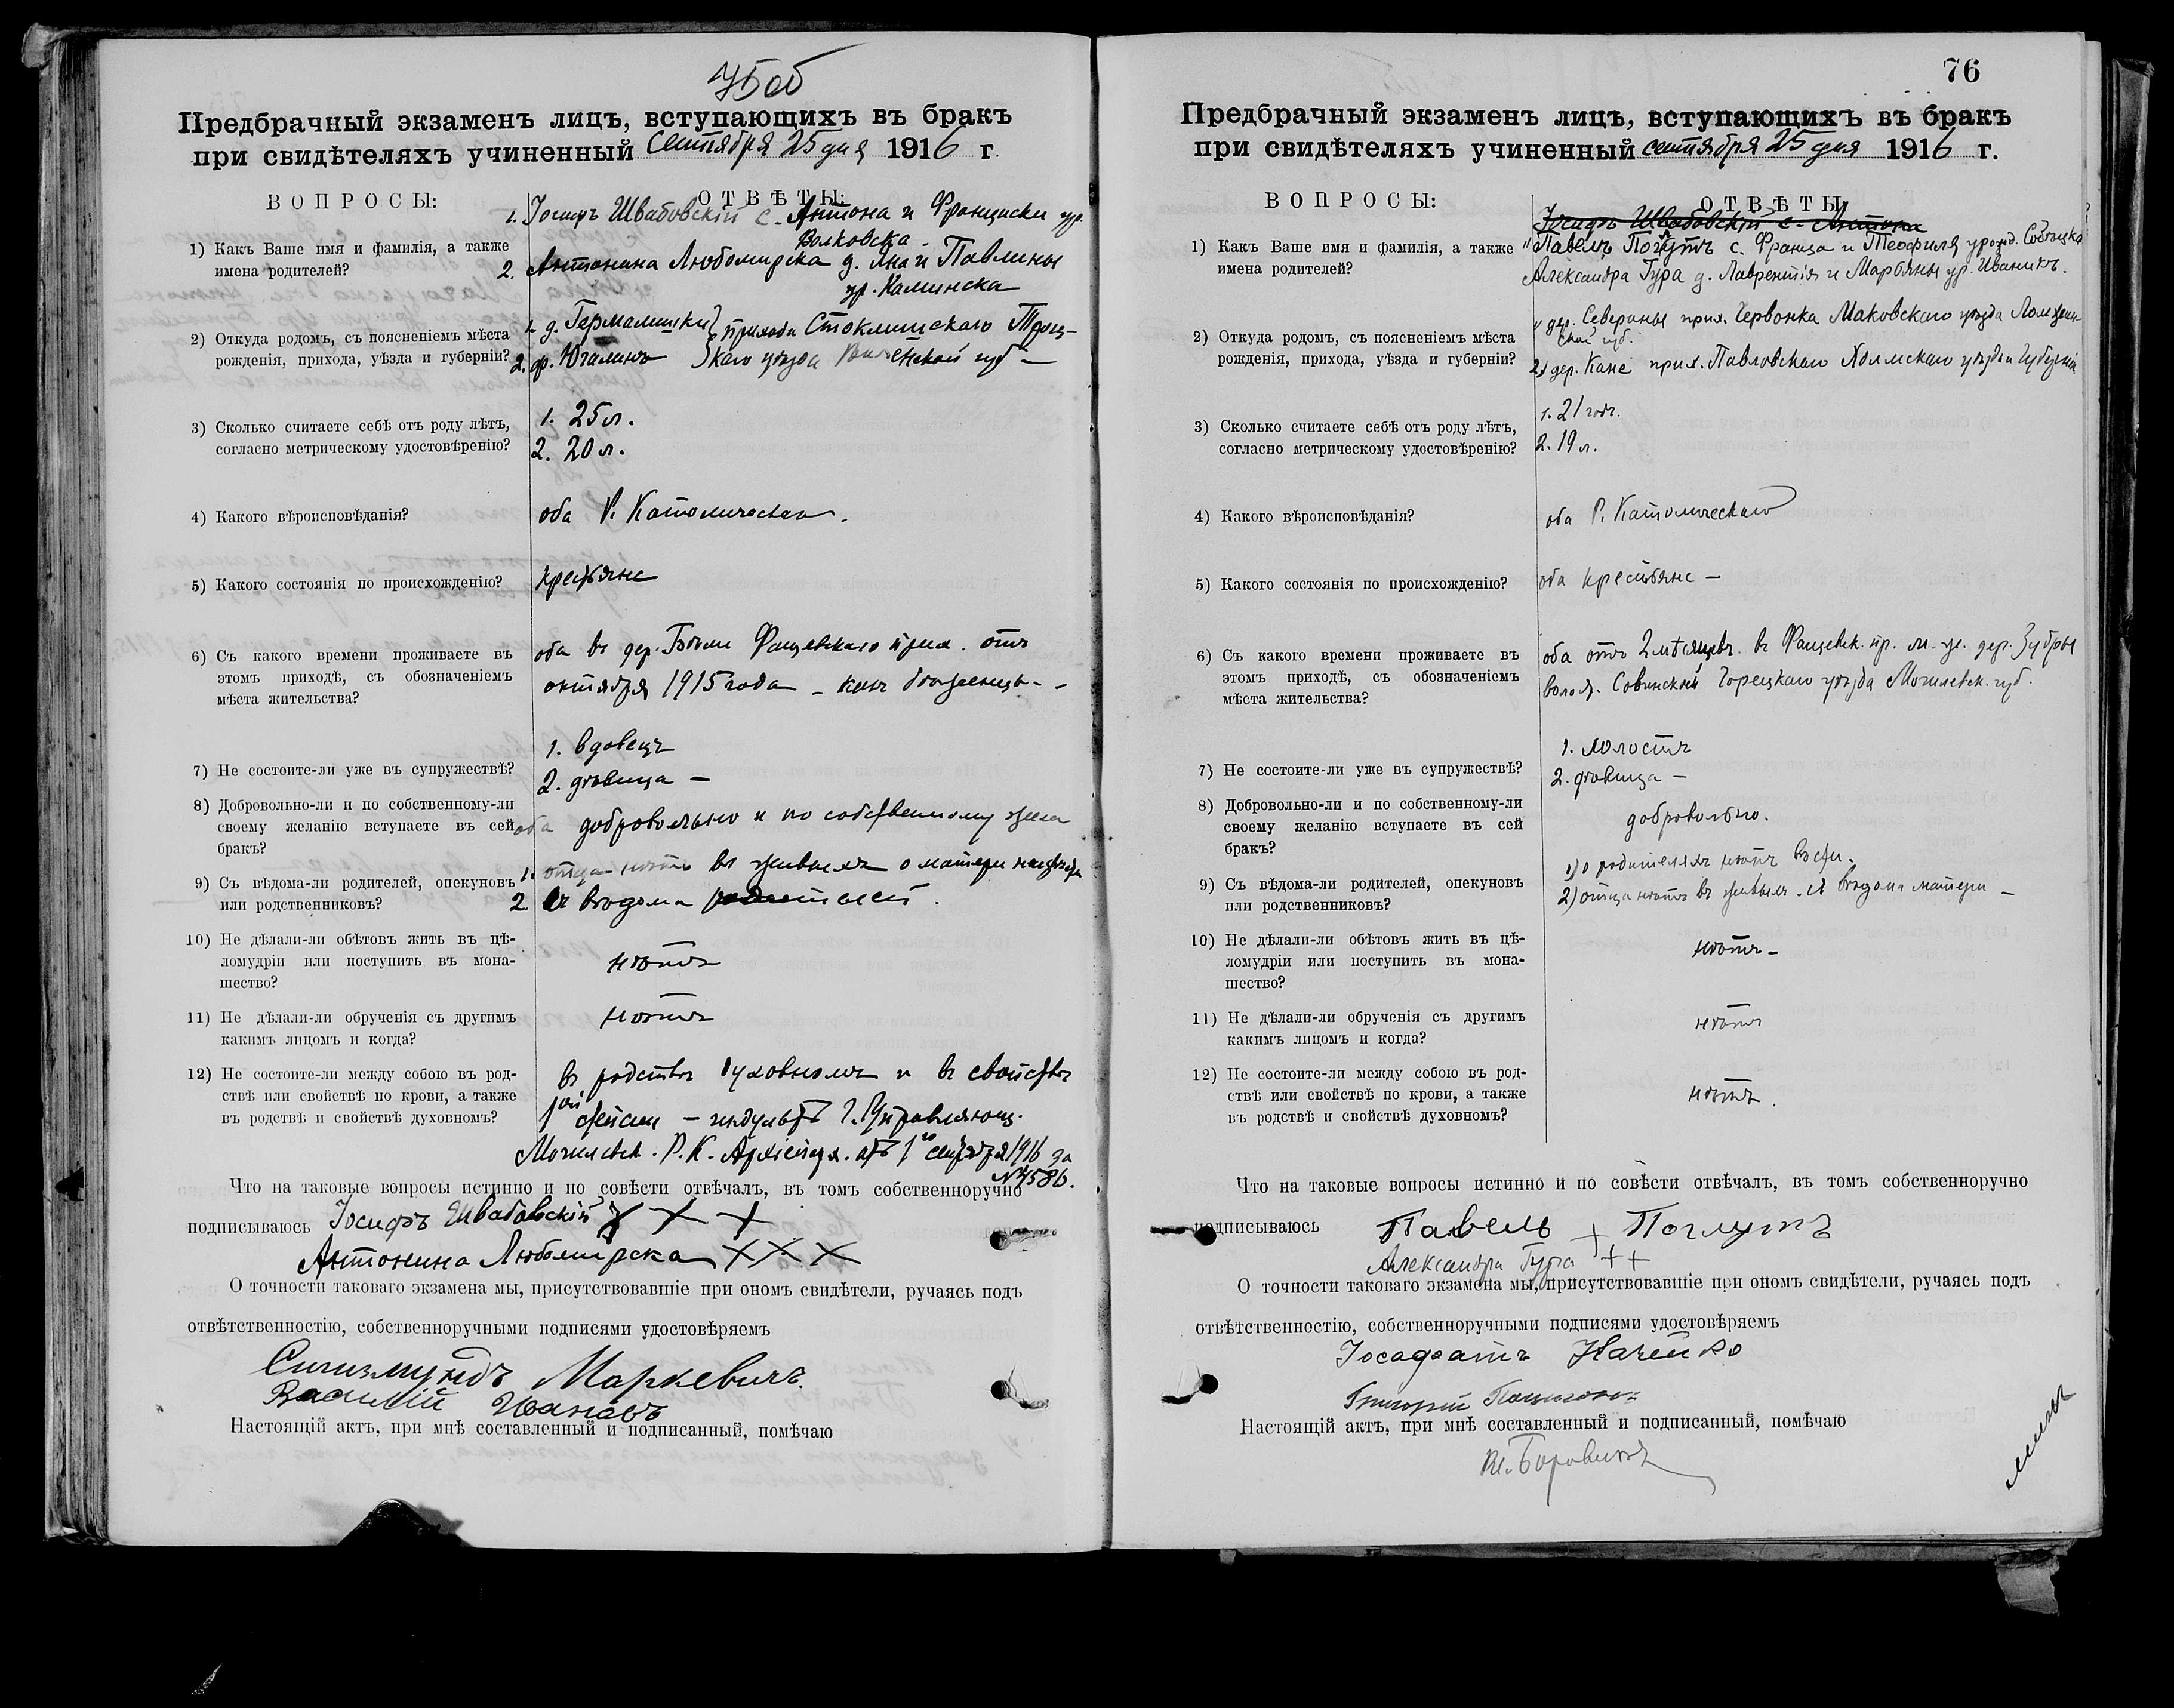 75об
Предбрачный экзаменъ лицъ, вступающихъ въ бракъ
при свидѣтеляхъ учиненный сентября 25 дня 1916 г.
ВОПРОСЫ:
ОТВѢТЫ:
1) Какъ Ваше имя и фамилія, а также
имена родителей?
1. Іосифъ Швабовскій с. Антона и Франциски ур.
Волковска
2. Антонина Любомирска д. Яна и Павлины
ур. Каминска
2) Откуда родомъ, съ поясненіемъ мѣста
рожденія, прихода, уѣзда и губерніи?
1. д. прихода Стоклишскаго Троц-
2. ф. Югалинъ каго уѣзда Виленской губ
3) Сколько считаете себѣ отъ роду лѣтъ,
согласно метрическому удостовѣренію?
1. 25 л.
2. 20 л.
4) Какого вѣроисповѣданія?
оба Р. Католическаго.
5) Какого состоянія по происхожденію?
крестьяне
6) Съ какого времени проживаете въ
этомъ приходѣ, съ обозначеніемъ
мѣста жительства?
оба въ дер. Фащевскаго прих. отъ
октября 1915 года - какъ бѣженцы -
7) Не состоите-ли уже въ супружествѣ?
1. вдовецъ
2. дѣвица -
8) Добровольно-ли и по собственному-ли
своему желанію вступаете въ сей
бракъ?
оба добровольно и по собственному жела
9) Съ вѣдома-ли родителей, опекуновъ
или родственниковъ?
1. отца нѣтъ въ живыхъ о матери
2 съ вѣдома родителей.
10) Не дѣлали-ли обѣтовъ жить въ цѣ-
ломудріи или поступить въ мона-
шество?
нѣтъ
11) Не дѣлали-ли обрученія съ другимъ
какимъ лицомъ и когда?
нѣтъ
12) Не состоите-ли между собою въ род-
ствѣ или свойствѣ по крови, а также
въ родствѣ и свойствѣ духовномъ?
въ родствѣ духовномъ и въ свойствѣ
1ой степени - индультъ Г. Управляющ.
Могилевск. Р. К. Архіепарх. отъ 1го сентября 1916 за
№ 4586.
Что на таковые вопросы истинно и по совѣсти отвѣчалъ, въ томъ собственноручно
подписываюсь Іосифъ Швабовскій X X X
Антонина Любомирска X X X
О точности таковаго экзамена мы, присутствовавшіе при ономъ свидѣтели, ручаясь подъ
отвѣтственностію, собственноручными подписями удостовѣряемъ
Сигизмундъ Маркевичъ.
Василій Ивановъ
Настоящій актъ, при мнѣ составленный и подписанный, помѣчаю
76
Предбрачный экзаменъ лицъ, вступающихъ въ бракъ
при свидѣтеляхъ учиненный сентября 25 дня 1916 г.
ВОПРОСЫ:
ОТВѢТЫ
Іосифъ Швабовскій с. Антона
1) Какъ Ваше имя и фамилія, а также
имена родителей?
1) Павелъ с. Франца и Теофиля урожд.
Александра Гура д. Лаврентія и Марьяны ур. Иванюкъ.
2) Откуда родомъ, съ поясненіемъ мѣста
рожденія, прихода, уѣзда и губерніи?
1) дер. Северины прих. Червонка Маковскаго уѣзда Ломжин-
ской губ.
2) дер. Кане прих. Павловскаго Холмскаго уѣзда и губерніи
3) Сколько считаете себѣ отъ роду лѣтъ,
согласно метрическому удостовѣренію?
1. 21 годъ.
2. 19 л.
4) Какого вѣроисповѣданія?
оба Р. Католическаго
5) Какого состоянія по происхожденію?
оба крестьяне -
6) Съ какого времени проживаете въ
этомъ приходѣ, съ обозначеніемъ
мѣста жительства?
оба отъ 2 мѣсяцевъ въ Фащевск. пр. дер. Зубры
волост. Горецкаго уѣзда Могилевск. губ.
7) Не состоите-ли уже въ супружествѣ?
1. холостъ
2. дѣвица -
8) Добровольно-ли и по собственному-ли
своему желанію вступаете въ сей
бракъ?
добровольно.
9) Съ вѣдома-ли родителей, опекуновъ
или родственниковъ?
1) о родителяхъ нѣтъ вѣсти.
2) отца нѣтъ въ живыхъ. съ вѣдома матери -
10) Не дѣлали-ли обѣтовъ жить въ цѣ-
ломудріи или поступить въ мона-
шество?
нѣтъ -
11) Не дѣлали-ли обрученія съ другимъ
какимъ лицомъ и когда?
нѣтъ
12) Не состоите-ли между собою въ род-
ствѣ или свойствѣ по крови, а также
въ родствѣ и свойствѣ духовномъ?
нѣтъ.
Что на таковые вопросы истинно и по совѣсти отвѣчалъ, въ томъ собственноручно
подписываюсь Павелъ + Погутъ
Александра Гура ++
О точности таковаго экзамена мы, присутствовавшіе при ономъ свидѣтели, ручаясь подъ
отвѣтственностію, собственноручными подписями удостовѣряемъ
Іосафатъ
Григорій
Настоящій актъ, при мнѣ составленный и подписанный, помѣчаю
Кс. Боровикъ